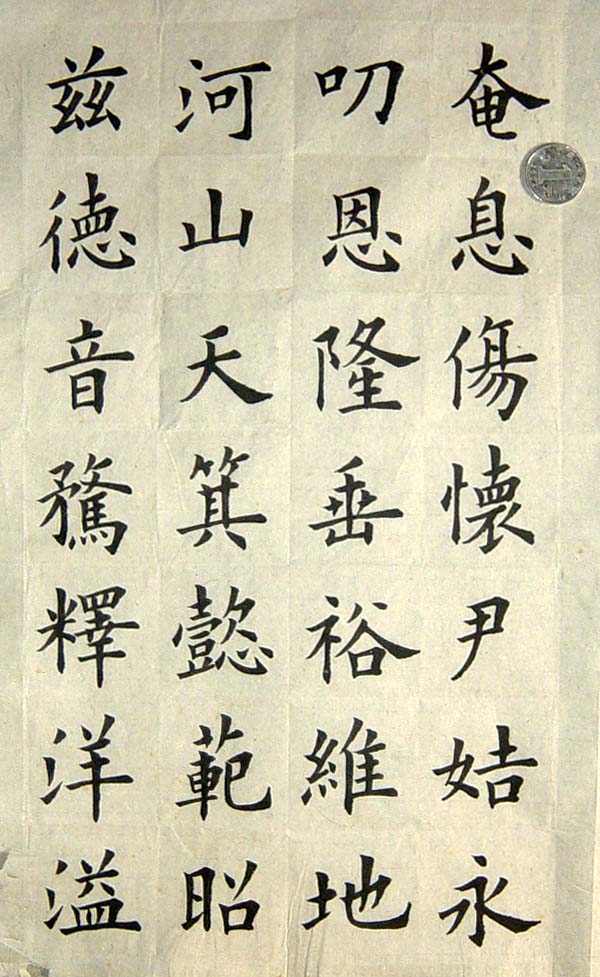 奄息傷懷尹姞永
叨恩隆垂裕維地
河山天箕懿範昭
兹德音騖釋洋溢